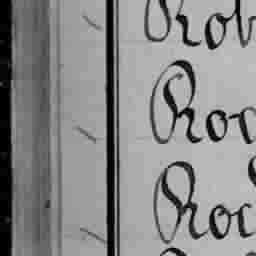 Rob
Roc
Roc